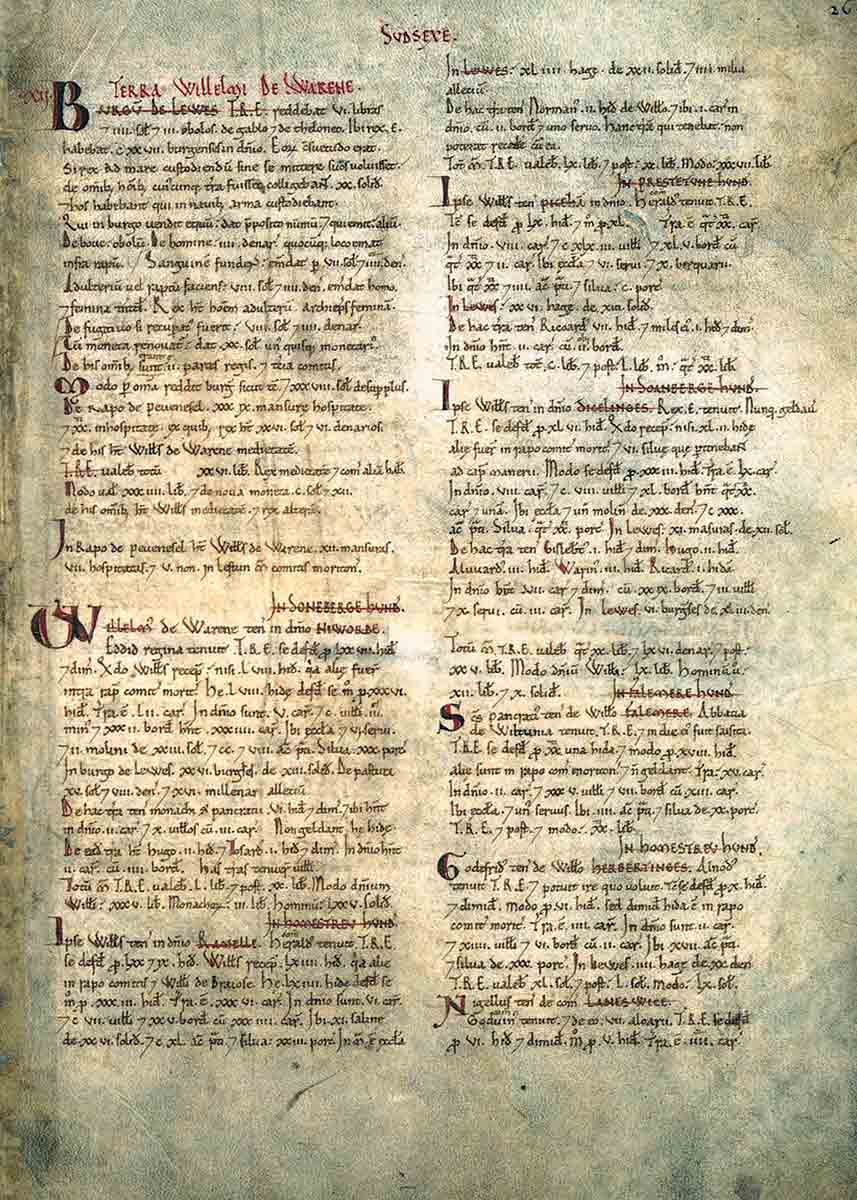 26
SVDSEXE.
XII. TERRA WILLELMI DE WARENE.
BVRGV̅ DE LEWES T.R.E. reddebat VI. libras
⁊ IIII. sol̃ ⁊ III. obolos. de gablo ⁊ de theloneo. Ibi rex .E.
habebat .C.XXVII. burgenses in dñio. Eoꝝ c̃suetudo erat.
Si rex ad mare custodiendu̅ sine se mittere suos voluisset.
de om̃ib; hom̃ib; cuicunq; t̃ra fuisset, colligeb̃ant .XX. solid.
⁊ hos habebant qui in nauib; arma custodiebant.
Qui in burgo uendit equu̅: dat p̃posito num̃u̅ ⁊ qui emit: aliu̅.
De boue: obolu̅. De homine .IIII. denar. quocu̅q; loco emat
infra rapu̅. Sanguine̅ fundens: em̃dat p̱ VII. sol̃ ⁊ IIII. den.
Adulteriu̅ uel raptu̅ faciens: VIII. sol̃ ⁊ IIII. den. em̃dat homo.
⁊ femina tñtd̃. Rex ht̃ hoem̃ adulteru̅. Archiep̃s femina̅.
De fugitiuo si recupat̃ fuerit: VIII. sol̃ ⁊ IIII. denar.
Cu̅ moneta renouat̃: dat .XX. sol̃ un̛ quisq; monetari̛.
De his om̃ib; erant II. partes regis. ⁊ t̃cia comitis.
Modo p̱ om̃a reddit burg̃ sicut tc̃. ⁊ XXXVIII. sol̃ de supplus.
De Rapo de peuenesel. XXXIX. mansure hospitate.
⁊ XX. inhospitate. ex quib; rex ht̃ XXVI. sol̃ ⁊ VI. denarios.
⁊ de his ht̃ Will̃s de Warene medietate̅.
T.R.E. ualeb totu̅ XXVI. lib. Rex medietate̅ ⁊ com̃ alia̅ hab̃.
Modo ual̃ XXXIIII. lib. ⁊ de noua moneta .C. sol̃ ⁊ XII.
de his om̃ib; ht̃ Will̃s medietate̅. ⁊ rex altera̅.
In Rapo de peuenesel ht̃ Will̃s de Warene .XII. mansuras.
VII. hospitatas. ⁊ V. non.
IN SONEBERGE HVND̃.
WILLELM̛ de Warene ten̛ in dñio NIWORDE.
Eddid regina tenuit. T.R.E. se defd̃ p̱ LXXVII. hid̃
⁊ dim̃. X̃do Will̃s recep̃: nisi LVIII. hid̃. q̃a alie fuer̃
infra rap̃ comit̃ morit̃. He LVIII. hide defd̃ se m̃ p̱ XXXVI.
hid̃. T̃ra .ẽ. LII. car̃. In dñio sunt .V. car̃. ⁊ C. uilli .III.
min̛ ⁊ XXXII. bord̃. hñt .XXXIIII. car̃. Ibi æccl̃a ⁊ VI. serui.
⁊ II. molini de XXIII. sol̃. ⁊ CC. ⁊ VIII. ac̃ p̃ti. Silua: XXX. porc̃
In burgo de Lewes. XXVI. burgẽses de XIII. solid̃. De pastura
XV. sol̃ ⁊ VIII. den̛. ⁊ XVI. millenar̃ allectiu̅
De hac t̃ra ten̛ monach̃ S̃ pancratii .VI. hid̃ ⁊ dim̃. ⁊ ibi hñt
in dñio .II. car̃. ⁊ X. uill̃os cu̅ .III. car̃. Non geldant he hide.
De ead̃ t̃ra ht̃ hugo .II. hid̃. ⁊ Tosard̛ .I. hid̃ ⁊ dim̃. In dñio hñt
II. car̃. cu̅ .IIII. bord̃. has t̃ras tenuer̃ uilli.
Totu̅ m̃. T.R.E. ualeb̃ .L. lib̃. ⁊ post: XX. lib̃. Modo dñium
Will̃i: XXXV. lib̃. Monachoꝝ: III. lib̃. Hominu̅: LXXV. solid̃.
IN HOMESTREV HVND̃.
Ipse Will̃s ten̛ in dñio RAMELLE. Herald̛ tenuit. T.R.E.
se defd̃ p̱ LXX ⁊ IX. hid̃. Will̃s recep̃ LXIIII. hid̃. q̃a alie
in rapo comitis ⁊ Will̃i de Braiose. He LXIIII. hide defd̃ se
m̃ p̱ .XXXIII. hid̃. T̃ra .ẽ. XXXVI. car̃. In dñio sunt .VI. car̃.
⁊ C. VII. uilli ⁊ XXV. bord̃ cu̅ XXXIIII. car̃. Ibi XI. saline
de XXVI. solid̃. ⁊ C.XL. ac̃ p̃ti. ⁊ silua: XXIII. porc̃. In m̃ .ẽ. eccl̃a
In LEWES: XLIIII. hagę. de XXII. solid̃. ⁊ IIII. milia
allectiu̅.
De hac t̃ra ten̛ Norman̛ .II. hid̃ de Will̃o. ⁊ ibi .I. car̃ in
dñio. cu̅ .II. bord̃ ⁊ uno seruo. Hanc t̃ra̅ qui tenebat. non
poterat recede̅ cu̅ ea.
Tot̃ m̃. T.R.E. ualeb̃ .LX. lib̃. ⁊ post: XL. lib̃. Modo: XXXVII. lib̃
IN PRESTETVNE HVND̃.
Ipse Will̃s ten̛ PICEHA̅ in dñio. Herald̛ tenuit. T.R.E.
Tc̃ se defd̃ p̱ LX. hid̃. ⁊ m̃ p̱ XL. T̃ra .ẽ. qt̃ XX. car̃.
In dñio .VIII. car̃. ⁊ C. LXIX. III. uilli ⁊ XLV. bord̃ cu̅
qt̃ XX. ⁊ II. car̃. Ibi eccl̃a ⁊ VI. serui. ⁊ X. berquarii.
Ibi qt̃ XX ⁊ IIII. ac̃ p̃ti. ⁊ silua: C. porc̃
In LEWES: XXVI. hagę. de XIII. solid̃.
De hac t̃ra ten̛ Ricoard̛ .VII. hid̃. ⁊ miles ei̛ .I. hid̃ ⁊ dim̃.
In dñio hñt .II. car̃ cu̅ .II. bord̃.
T.R.E. ualeb̃ tot̃ .C. lib̃. ⁊ post: L. lib̃. m̃: qt̃ XX. lib̃.
IN SOANBERGE HVND̃.
Ipse Will̃s ten̛ in dñio DICELINGES. Rex .E. tenuit. Nunq̃ geldaư
T.R.E. se defd̃ p̱ XLVI. hid̃. X̃do recep̃: nisi .XLII. hidę
alię fuer̃ in rapo comit̃ morit̃. ⁊ VI. siluę que ptinebant
ad cap̃ manerii. Modo se defd̃ p̱ XXXIII. hid̃. T̃ra .ẽ. LX. car̃.
In dñio .VIII. car̃. ⁊ C. ⁊ VIII. uilli ⁊ XL. bord̃ hñt qt̃ XX.
car̃ ⁊ una̅. Ibi eccl̃a ⁊ un̛ molin̛ de .XXX. den̛. ⁊ C.XXX.
ac̃ p̃ti. Silua: qt̃ XX. porc̃. In Lewes: XI. masuras. de XII. sol̃.
De hac t̃ra ten̛ Gislebt̛ .I. hid̃ ⁊ dim̃. Hugo .II. hid̃.
Aluuard̛ .III. hid̃. Warin̛ .III. hid̃. Ricard̛ .I. hida̅.
In dñio hñt VII. car̃ ⁊ dim̃. cu̅ .XXIX. bord̃. ⁊ III. uilli
⁊ X. serui. cu̅ .III. car̃. In Lewes .VI. burgẽses de XLIII. den̛.
Totu̅ m̃. T.R.E. ualeb̃ qt̃ XX. lib̃. ⁊ LXVI. denar̃. ⁊ post:
XXV. lib̃. Modo dñiu̅ Will̃i: LX. lib̃. Hominu̅ ư:
XII. lib̃. ⁊ X. solid̃.
IN FALEMERE HVND̃
Sc̃s pancrati̛ ten̛ de Will̃o FALEMERE. Abbatia
de Wiltunia tenuit. T.R.E. ⁊ in die ei̛ fuit saisita.
T.R.E. se defd̃ p̱ XX. una hida. ⁊ modo p̱ XVIII. hid̃.
alię sunt in rapo com̃ moriton̛. ⁊ ñ geldant. T̃ra: XV. car̃.
In dñio .II. car̃. ⁊ XXXV. uilli ⁊ VII. bord̃ cu̅ XIII. car̃.
Ibi eccl̃a. ⁊ un̛ seruus. Ibi .IIII. ac̃ p̃ti. ⁊ silua de .XX. porc̃.
T.R.E. ⁊ post. ⁊ modo: XX. lib̃.
IN HOMESTREV HVND̃.
Godefrid̛ ten̛ de Will̃o HERBERTINGES. Alnod̛
tenuit T.R.E. ⁊ potuit ire quo uoluit. Tc̃ se defd̃ p̱ X. hid̃
⁊ dimid̃. modo .p̱ VI. hid̃. sed dimid̃ hida .ẽ. in rapo
comit̃ morit̃. T̃ra .ẽ. IIII. car̃. In dñio sunt .II. car̃.
⁊ XIIII. uilli ⁊ VI. bord̃ cu̅ .II. car̃. Ibi XVII. ac̃ p̃ti.
⁊ silua de .XXX. porc̃. In Lewes .IIII. hagę de XX. den̛
T.R.E. ualeb̃ XL. sol̃. ⁊ post: L. sol̃. Modo: LX. sol̃.
Nigellus ten̛ de com̃
Goduin̛ tenuit. ⁊ de eo .VII. aloarii. T.R.E. se defd̃
p̱ VI. hid̃ ⁊ dimid̃. M̃ p̱ .V. hid̃. T̃ra .ẽ. IIII. car̃.